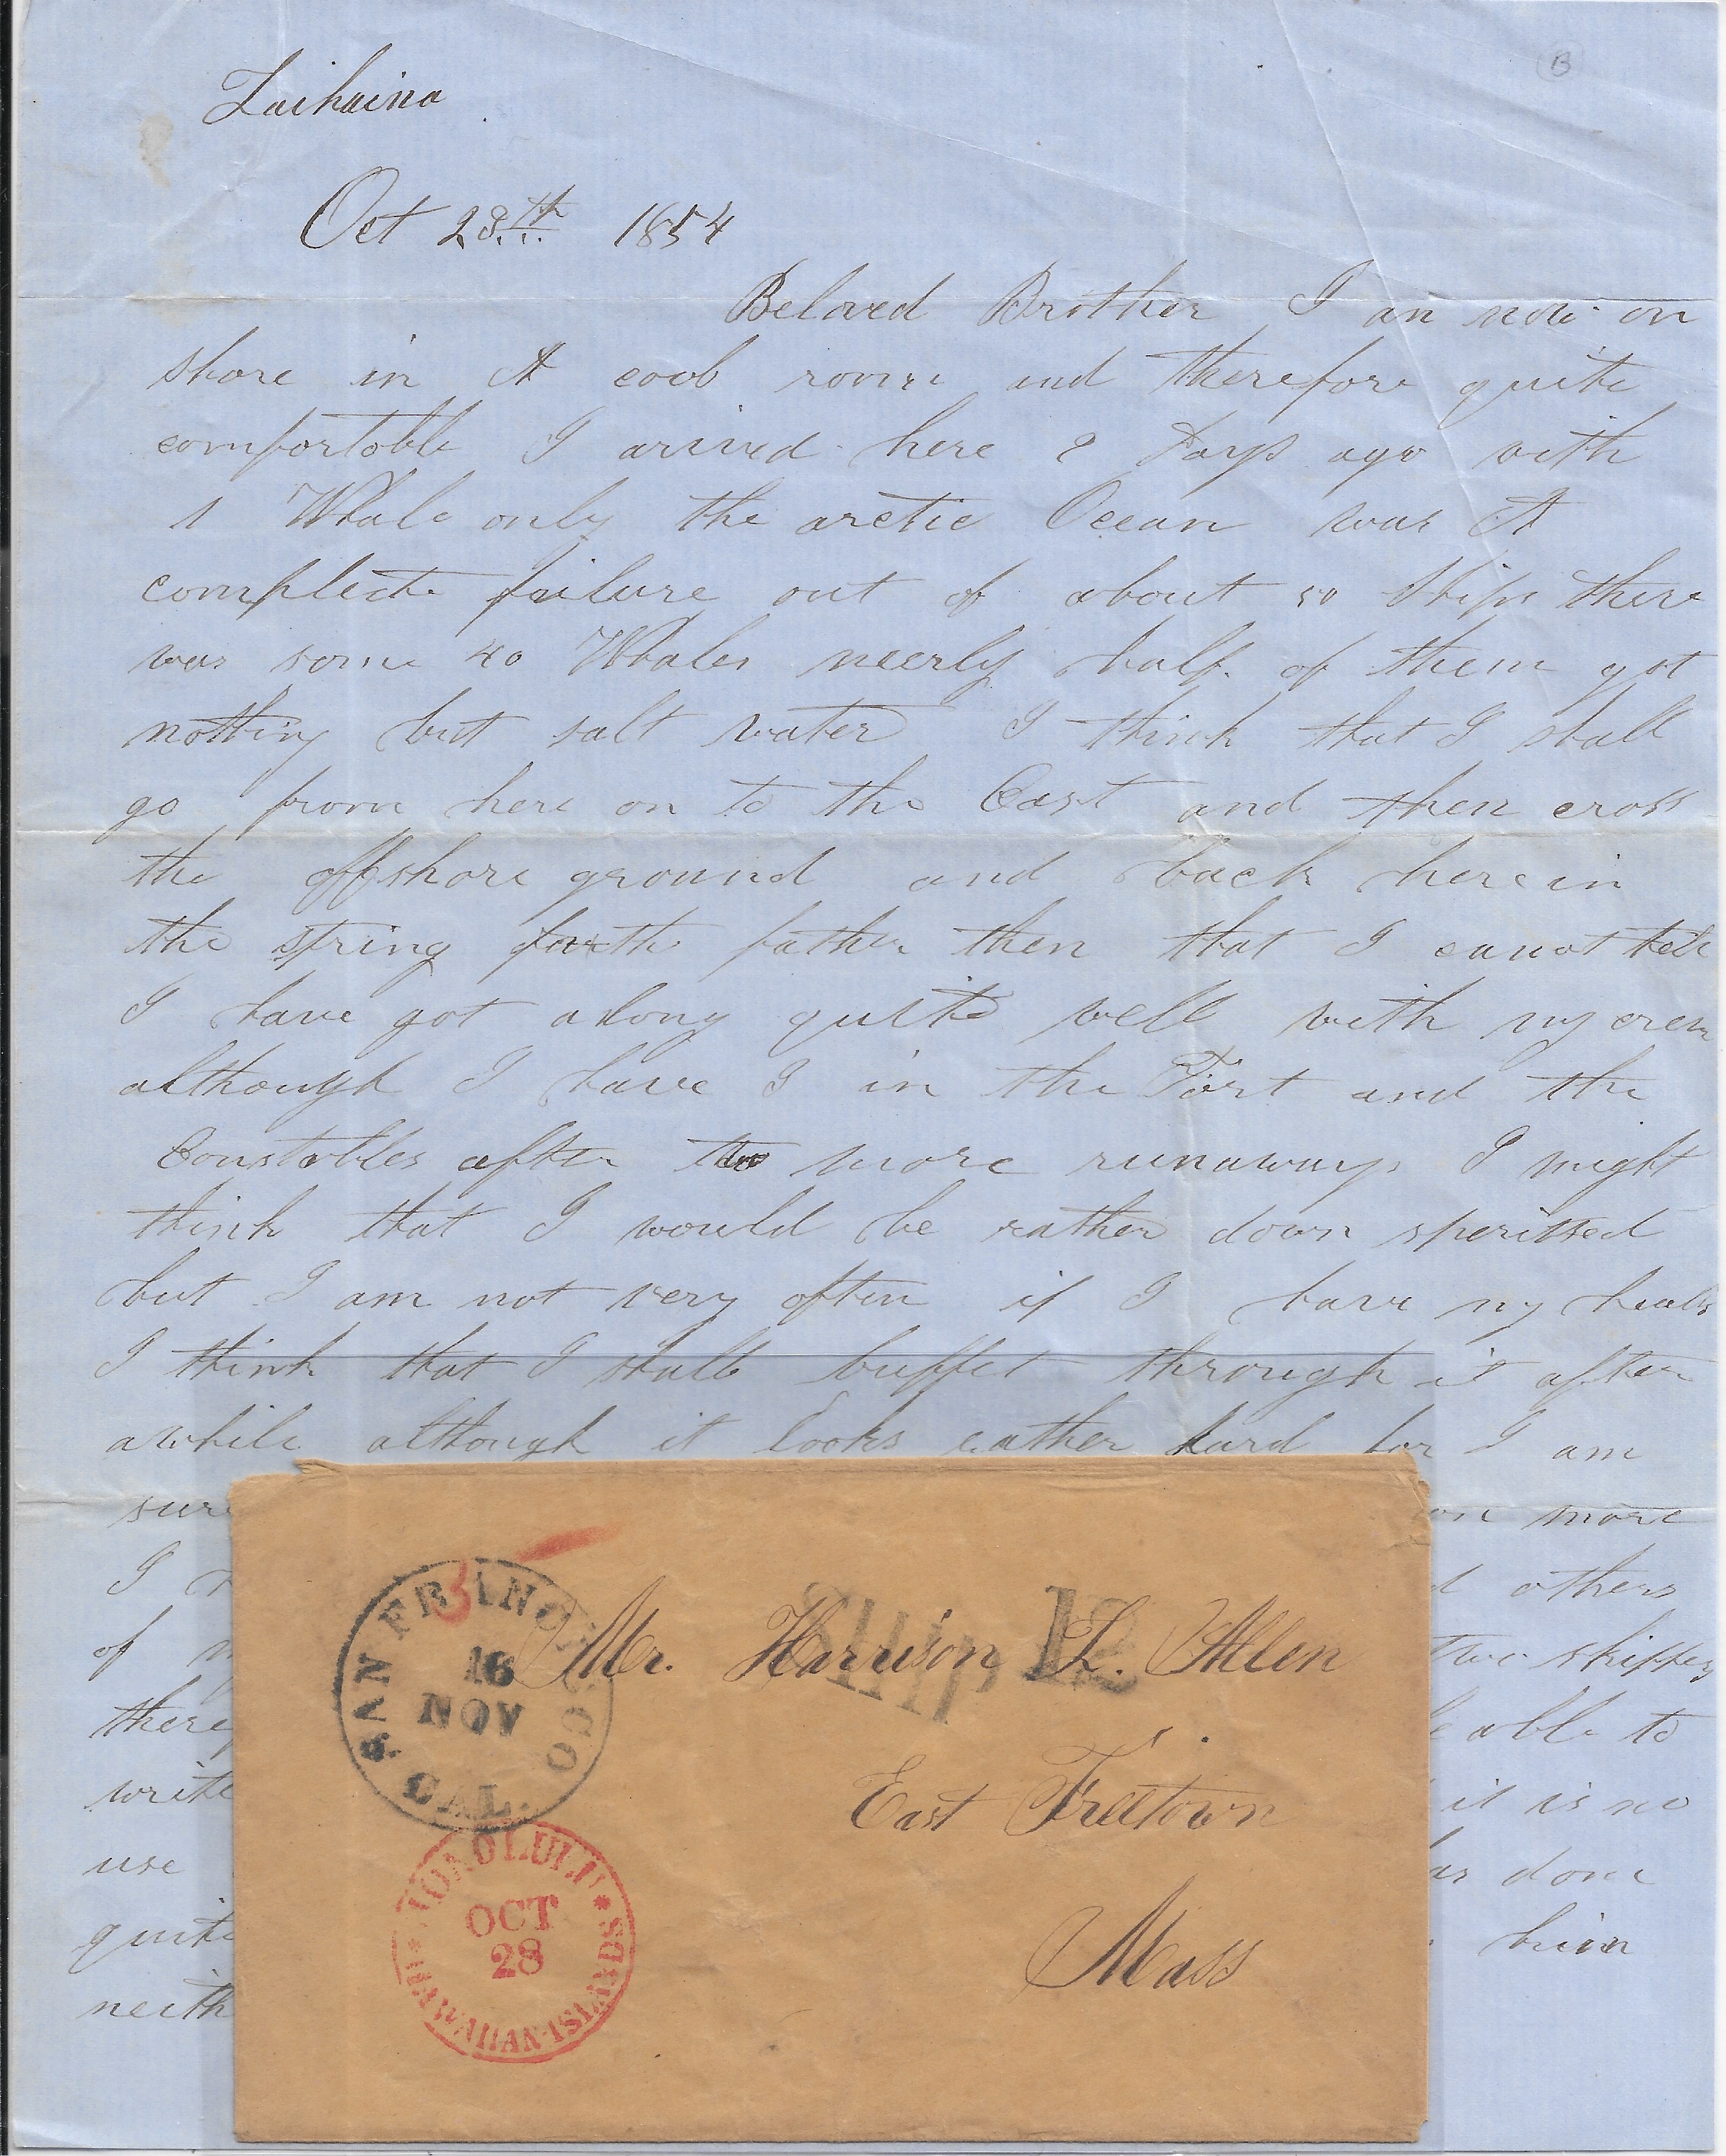 Laihaina
Oct 28th 1854
Beloved Brother I am now on
shore in A cool room and therefore quite
comfortable I arived here 2 days ago with
1 Whale only the arctic Ocean was A
complecte failure out of about 50 Ships there
was some 40 Whales neerly half of them got
nothing but salt water I think that I shall
go from here on to the East and then cross
the offshore ground and back here in
the spring father then that I canot tell
I have got along quite well with my crew
although I have 3 in the Fort and the
Constables after two more runaways I might
think that I would be rather down speritted
but I am not very often if I have my health
I think that I shall buffet through it after
awhile although it looks rather hard for I am
sure more
I others
of two shippes
there able to
write it is no
use has done
quite him
neith
B
3
SAN FRANCISCO
16
NOV
CAL.
Ship 12
Mr. Harrison L. Allen
East Freetown
Mass
HONOLULU
OCT
28
HAWAIIAN ISLANDS